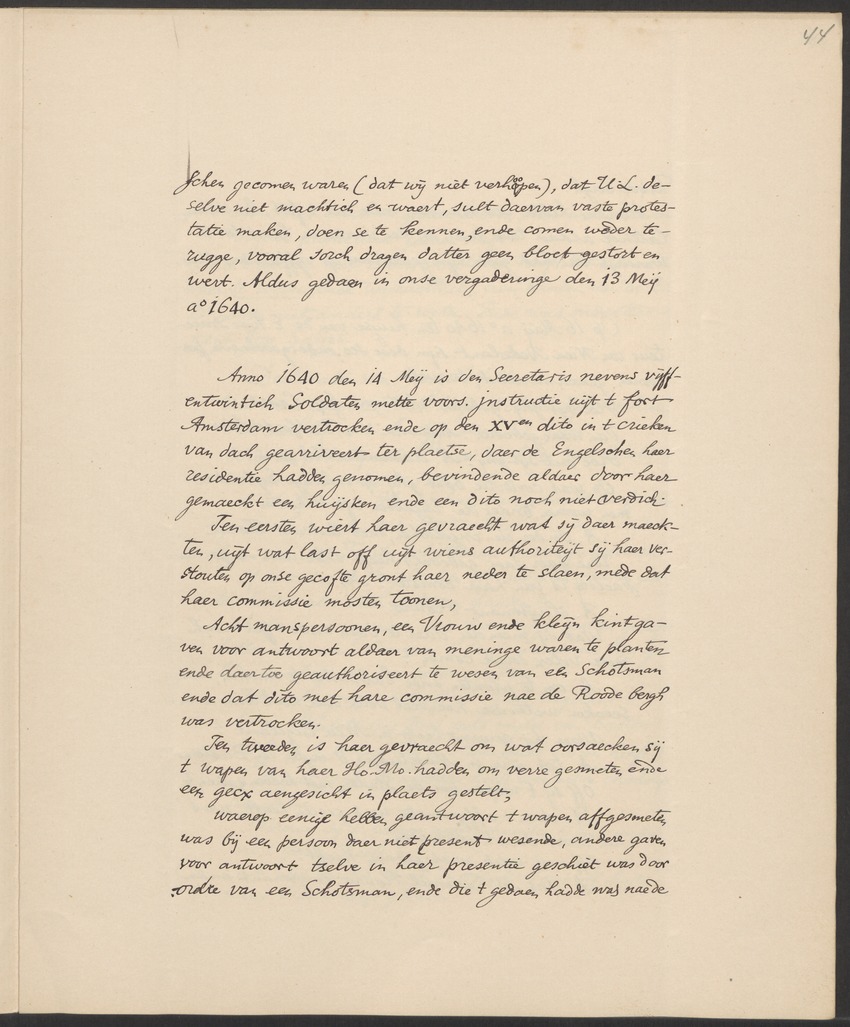 44
schen gecomen waren (dat wij niet verhoopen), dat U.L. de-
selve niet machtich en waert, sult daervan vaste protes-
tatie maken, doen se te kennen, ende comen weder te-
rugge, vooral sorch dragen datter geen bloet gestort en
wert. Aldus gedaen in onse vergaderinge den 13 Meij
a° 1640.
Anno 1640 den 14 Meij is den Secretaris nevens vijff-
entwintich Soldaten mette voors. jnstructie uijt t fort
Amsterdam vertrocken ende op den XVen dito in t crieken
van dach gearriveert ter plaetse, daer de Engelschen haer
residentie hadden genomen, bevindende aldaer door haer
gemaeckt een huijsken ende een dito noch niet verdich.
Ten eersten wiert haer gevraecht wat sij daer maeck-
ten, uijt wat last off uijt wiens authoriteijt sij haer ver-
stouten op onse gecofte gront haer neder te slaen, mede dat
haer commissie mosten toonen,
Acht manspersoonen, een Vrouw ende kleijn kint ga-
ven voor antwoort aldaer van meninge waren te planten
ende daertoe geauthoriseert te wesen van een Schotsman
ende dat dito met hare commissie nae de Roode bergh
was vertrocken.
Ten tweeden is haer gevraecht om wat oorsaecken sij
t wapen van haer Ho. Mo. hadden om verre gesmeten ende
een gecx aengesicht in plaets gestelt,
waerop eenige hebben geantwoort t wapen affgesmeten
was bij een persoon daer niet present wesende, andere gaven
voor antwoort tselve in haer presentie geschiet was door
ordre van een Schotsman, ende die t gedaen hadde was nae de